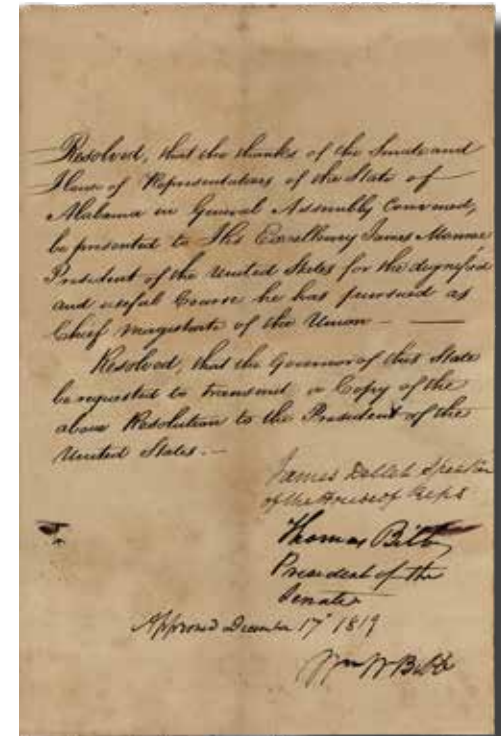 Resolved, that the thanks of the Senate and
House of Representatives of the State of
Alabama in General Assembly Convened,
be presented to His Excellency James Monroe
President of the United States for the dignified
and useful Course he has pursued as
Chief Magistrate of the Union —
Resolved, that the Governor of this State
be requested to transmit a Copy of the
above Resolution to the President of the
United States. —
James Dellet Speaker
of the House of Reps
Thomas Bibb
President of the
Senate
Approved December 17th 1819
Wm W Bibb